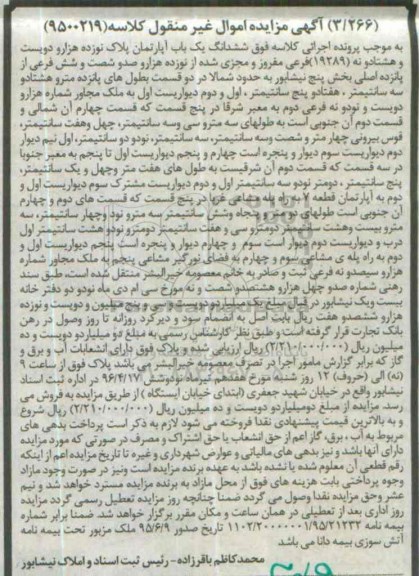 (۳/۲۶۶) آگهی مزایده اموال غیر منقول کلاسه (۹۵۰۰۲۱۹)
به موجب پرونده اجرائی کلاسه فوق ششدانگ یک باب آپارتمان پلاک نوزده هزارو دویست
و هشتادو نه (۱۹۲۸۹) فرعی مفروز و مجزی شده از نوزده هزارو صدو شصت و شش فرعی از
پانزده اصلی بخش پنج نیشابور به حدود شمالا در دو قسمت بطول های پانزده مترو هشتادو
سه سانتیمتر ، هفتادو پنج سانتیمتر ، اول و دوم دیواریست اول به ملک مجاور شماره هزارو
دویست و نودو نه فرعی دوم به معبر شرقا در پنج قسمت که قسمت چهارم آن شمالی و
قسمت دوم آن جنوبی است به طولهای سه مترو سی وسه سانتیمتر، چهل وهفت سانتیمتر،
قوس بیرونی چهار متر و شصت وسه سانتیمتر، سه سانتیمتر، نودو دو سانتیمتر، اول نیم دیوار
دوم دیواریست سوم دیوار و پنجره است چهارم و پنجم دیواریست اول تا پنجم به معبر جنوبا
در سه قسمت که قسمت دوم آن شرقیست به طول های هفت متر وچهل و یک سانتیمتر،
پنج سانتیمتر ، دومتر نودو سه سانتیمتر اول و دوم دیواریست مشترک سوم دیواریست اول و
دوم به آپارتمان قطعه ۷ به راه پله مشاعی غربا در پنج قسمت که قسمت های دوم و چهارم
آن جنوبی است طولهای دومترو پنجاه وشش سانتیمتر سه مترو نود وچهار سانتیمتر، سه
مترو بیست وهشت سانتیمتر دومترو سی و هفت سانتیمتر دومترو نودو هشت سانتیمتر اول
درب و دیواریست دوم دیوار است سوم و چهارم دیوار و پنجره است پنجم دیواریست اول و
دوم به راه پله ی مشاعی سوم و چهارم به فضای نورگیر مشاعی پنجم به ملک مجاور شماره
هزارو سیصدو نه فرعی ثبت و صادر به خانم معصومه خیرالبشر منتقل شده است، طبق سند
رهنی شماره صدو چهل هزارو هشتصدو شصت و نه مورخ سی ام دی ماه نودو دو دفتر خانه
بیست ویک نیشابور در قبال مبلغ یک میلیاردو دویست و سی و پنج میلیون و دویست و نوزده
هزارو ششصدو هفت ریال بابت اصل به انضمام سود و دیرکرد روزانه تا روز وصول در رهن
بانک تجارت قرار گرفته است و طبق نظر کارشناس رسمی به مبلغ دو میلیاردو دویست و ده
میلیون ریال (۲/۲۱۰/۰۰۰/۰۰۰) ریال ارزیابی شده و پلاک فوق دارای انشعابات آب و برق و
گاز که برابر گزارش مامور اجرا در تصرف معصومه خیرالبشر می باشد پلاک فوق از ساعت ۹
(نه) الی (حروف) ۱۲ روز شنبه مورخ هفدهم تیرماه نودوشش ۹۶/۴/۱۷ در اداره ثبت اسناد
نیشابور واقع در خیابان شهید جعفری (ابتدای خیابان ایستگاه) از طریق مزایده به فروش می
رسد. مزایده از مبلغ دومیلیاردو دویست و ده میلیون ریال (۲/۲۱۰/۰۰۰/۰۰۰) ریال شروع
و به بالاترین قیمت پیشنهادی نقدا فروخته می شود لازم به ذکر است پرداخت بدهی های
مربوط به آب ، برق، گاز اعم از حق انشعاب یا حق اشتراک و مصرف در صورتی که مورد مزایده
دارای آنها باشد و نیز بدهی های مالیاتی و عوارض شهرداری و غیره تا تاریخ مزایده اعم از اینکه
رقم قطعی آن معلوم شده یا نشده باشد به عهده برنده مزایده است ونیز در صورت وجود مازاد
وجوه پرداختی بابت هزینه های فوق از محل مازاد به برنده مزایده مسترد خواهد شد و نیم
عشر وحق مزایده نقدا وصول می گردد ضمنا چنانچه روز مزایده تعطیل رسمی گردد مزایده
روز اداری بعد از تعطیلی در همان ساعت و مکان مقرر برگزار خواهد شد. ضمنا برابر شماره
بیمه نامه تاریخ صدور ۹۵/۶/۹ ملک مزبور تحت بیمه نامه
آتش سوزی بیمه دانا می باشد
محمدکاظم باقرزاده - رئیس ثبت اسناد و املاک نیشابور